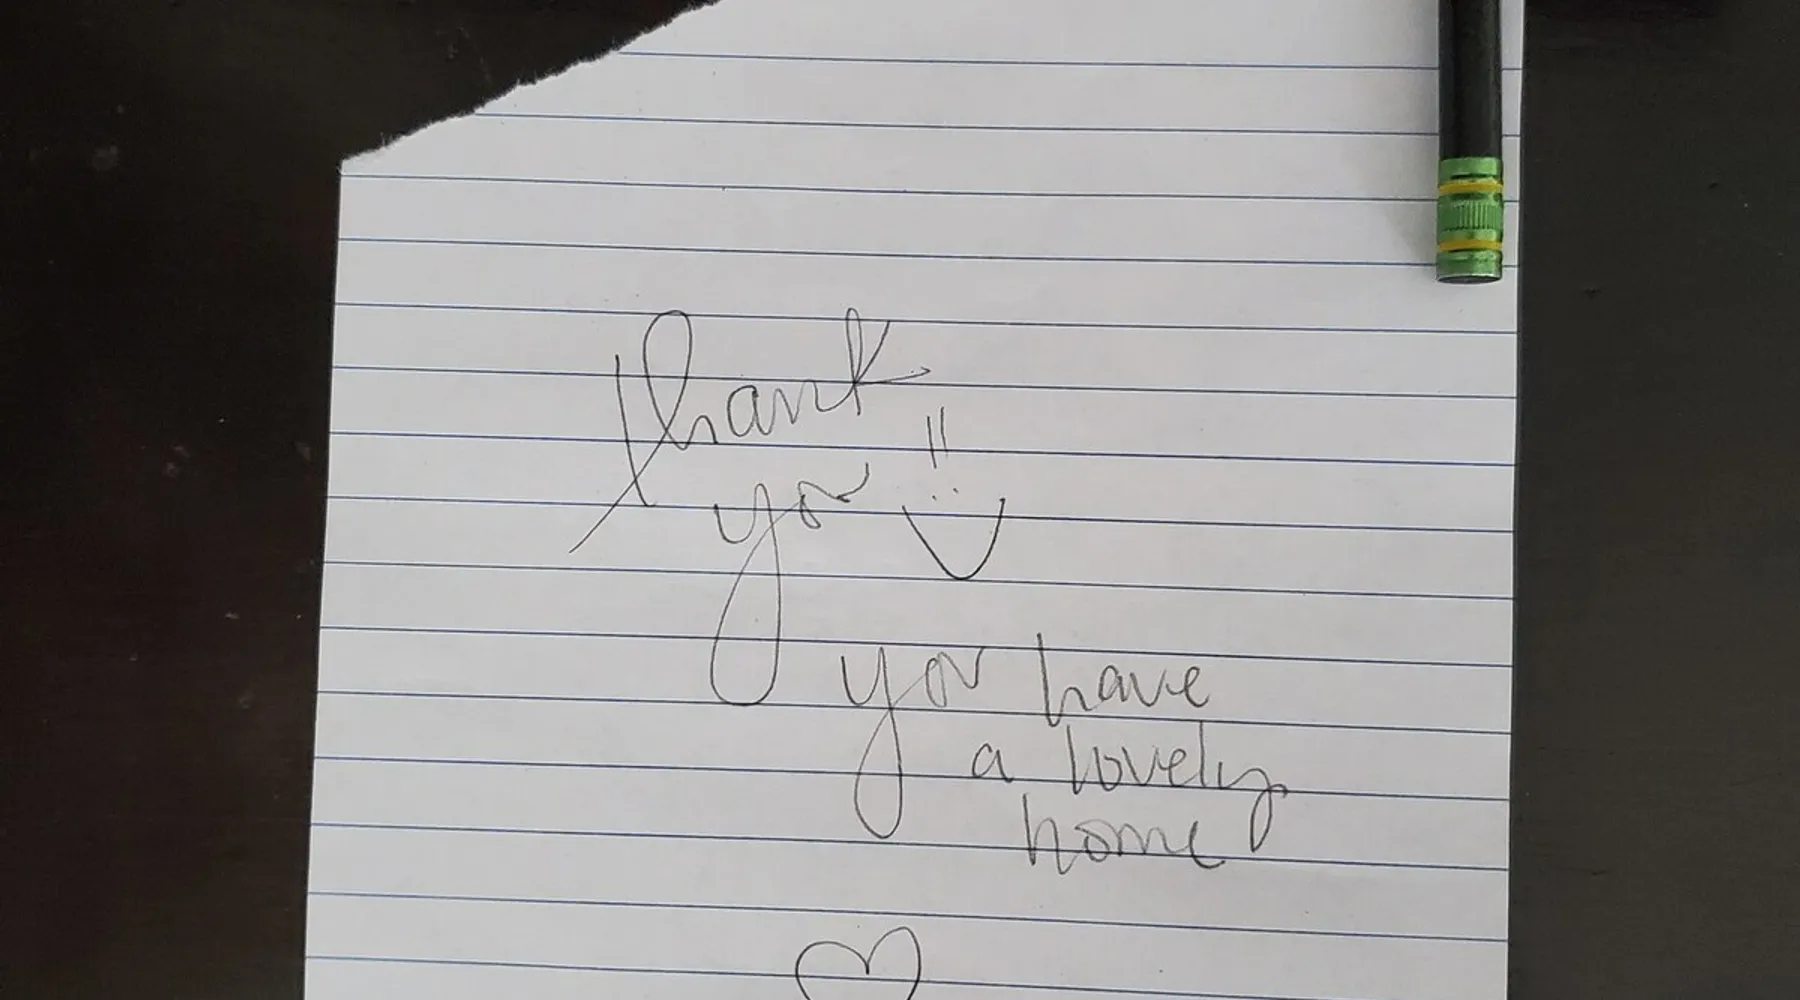 Thank
you!!
you have
a lovely
home